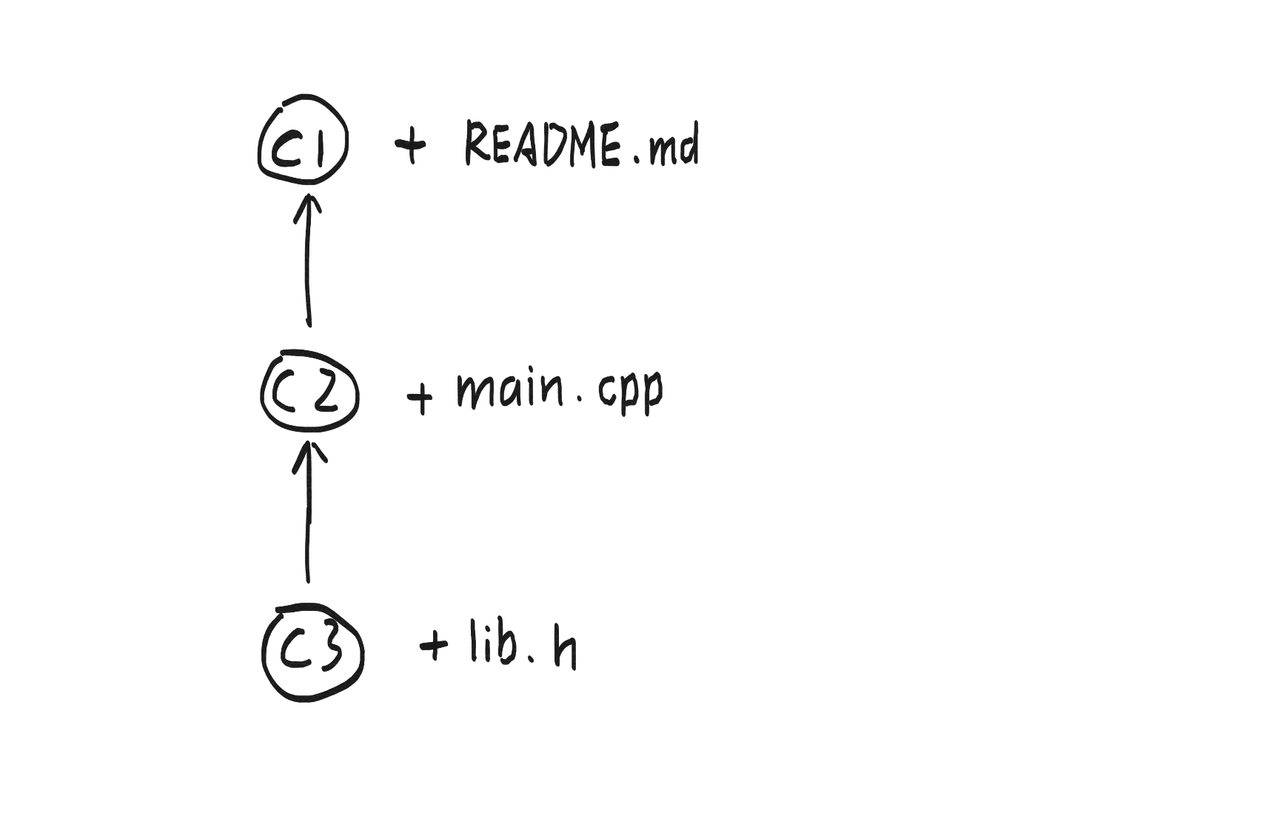 C1 + README.md
C2 + main.cpp
C3 + lib.h